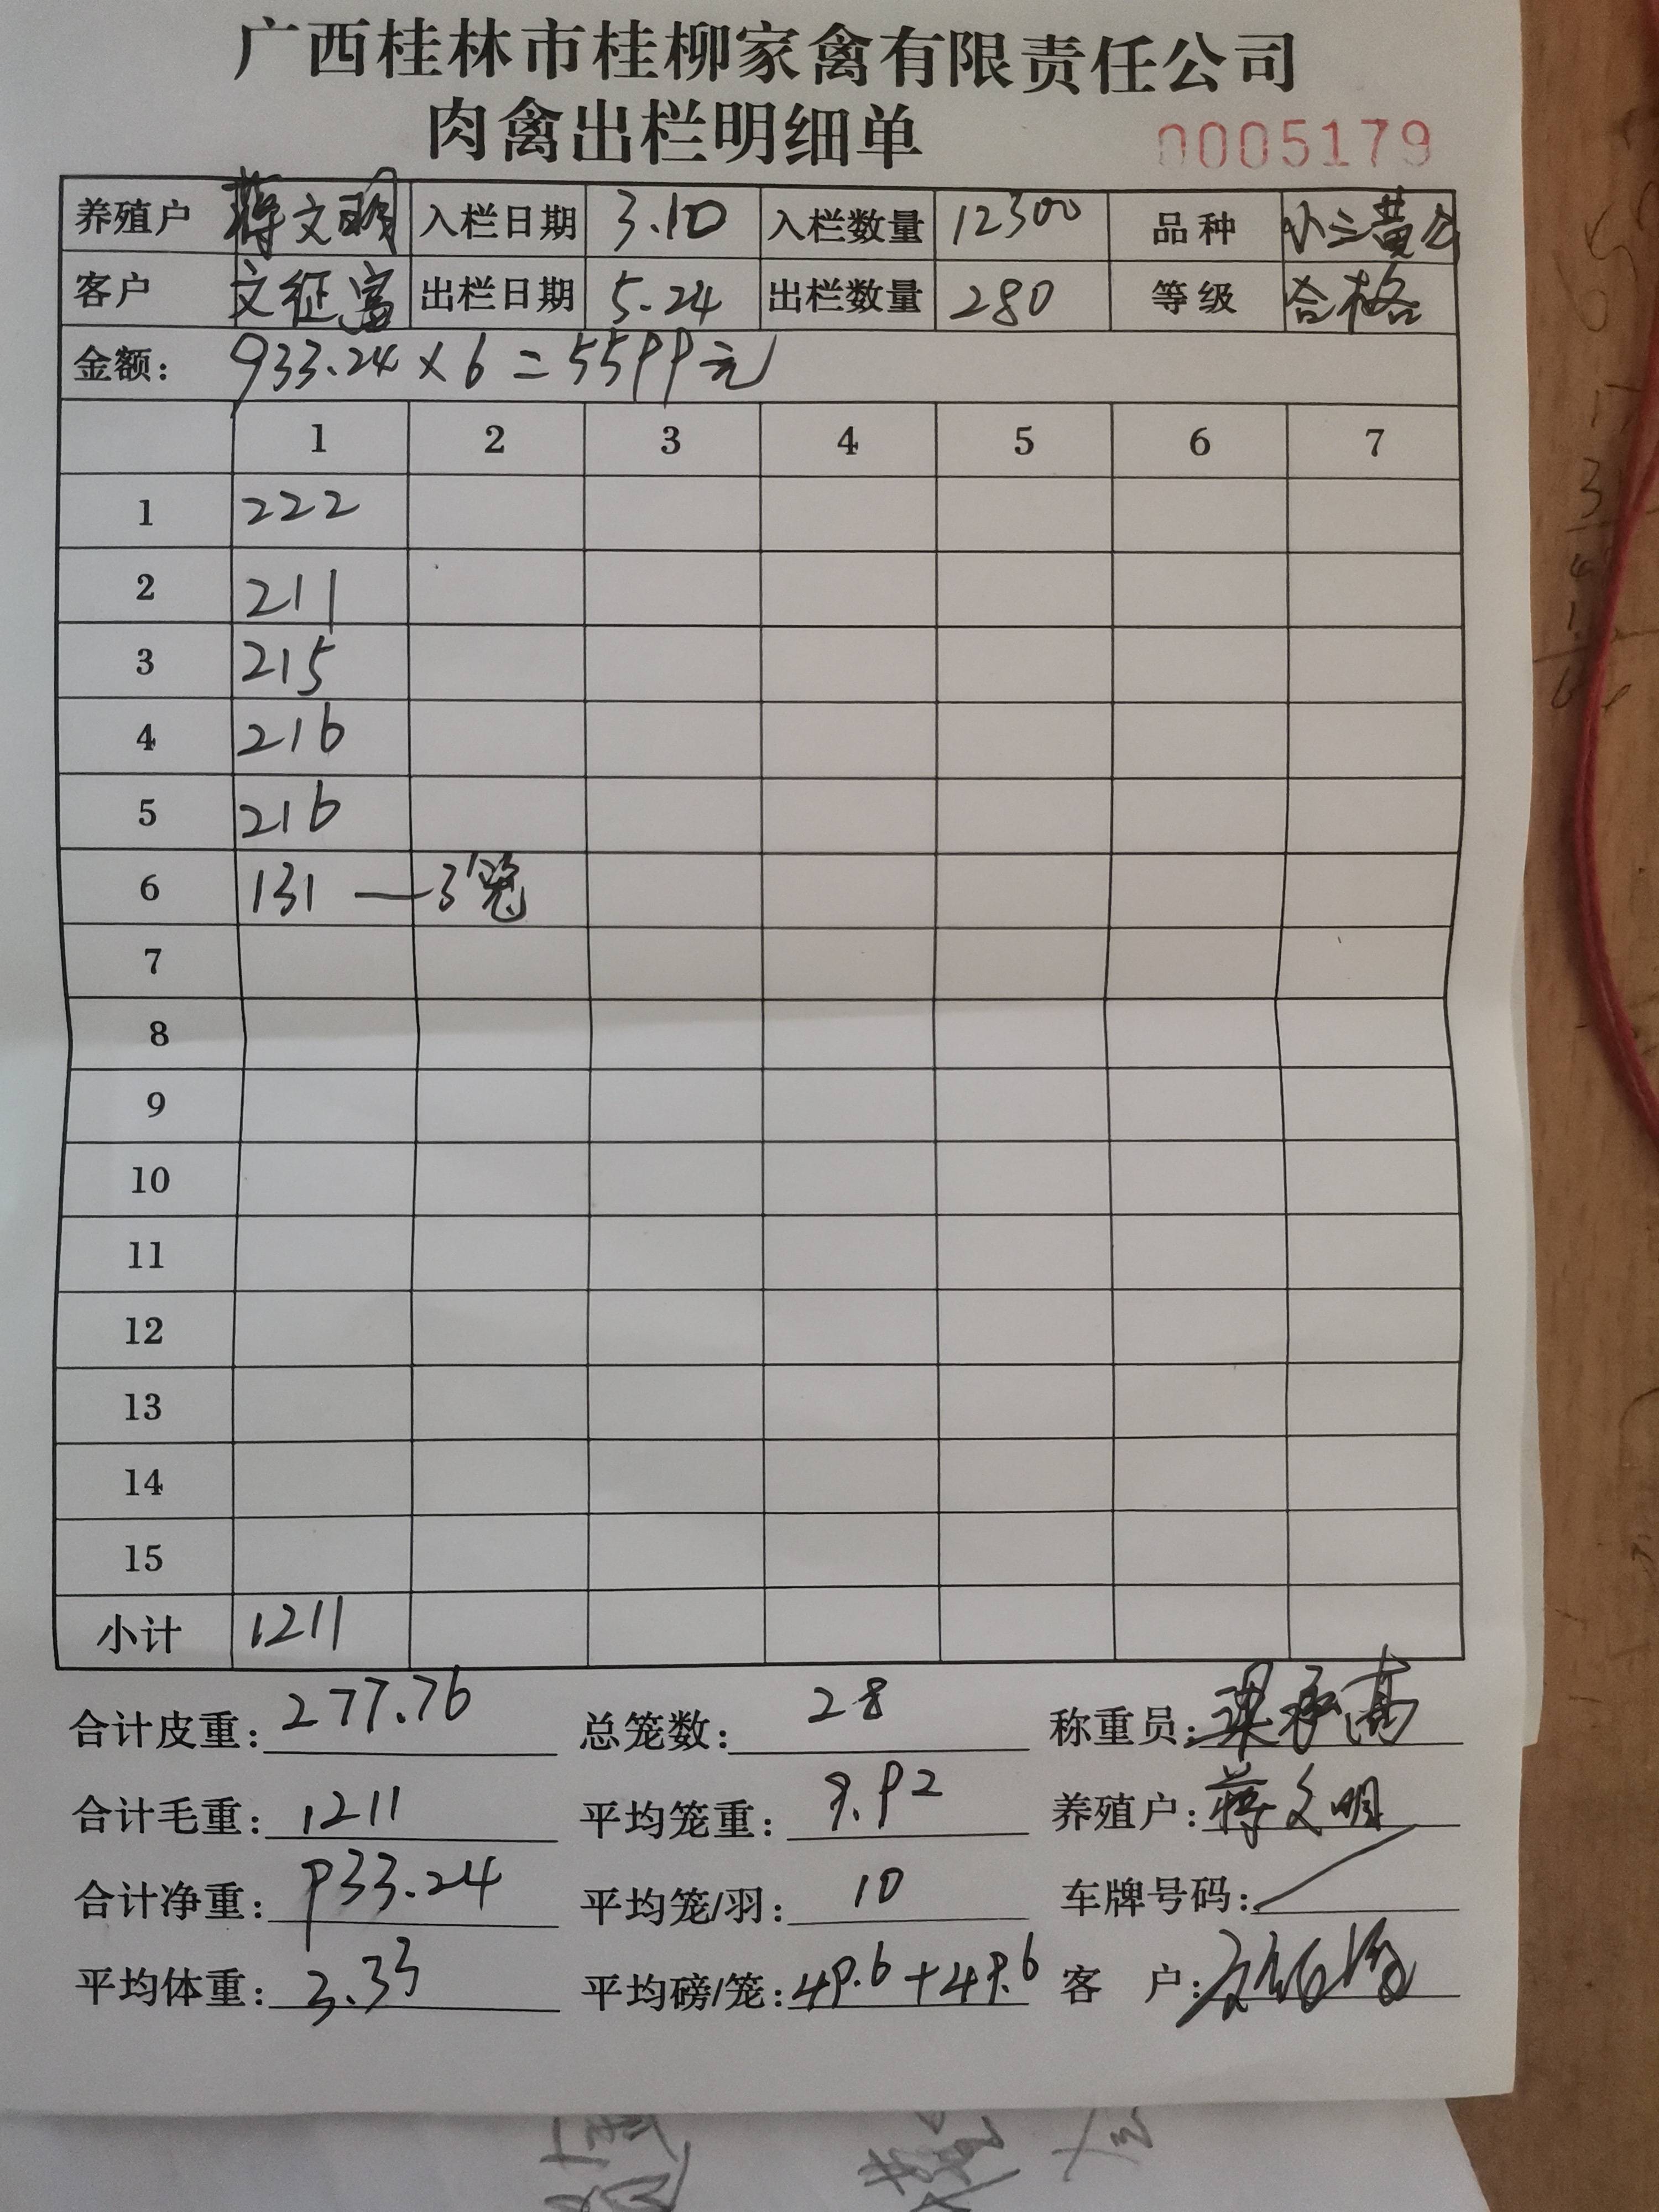 广西桂林市桂柳家禽有限责任公司
肉禽出栏明细单 0005179
养殖户 蒋文明 入栏日期 3.10 入栏数量 12300 品种 小三黄公
客户 文征富 出栏日期 5.24 出栏数量 280 等级 合格
金额: 933.24 × 6 = 5599元
1 2 3 4 5 6 7
1 222
2 211
3 215
4 216
5 216
6 131 — 3笼
7
8
9
10
11
12
13
14
15
小计 1211
合计皮重: 277.76 总笼数: 28 称重员:
合计毛重: 1211 平均笼重: 9.92 养殖户: 蒋文明
合计净重: 933.24 平均笼/羽: 10 车牌号码:
平均体重: 3.33 平均磅/笼: 49.6+49.6 客户: